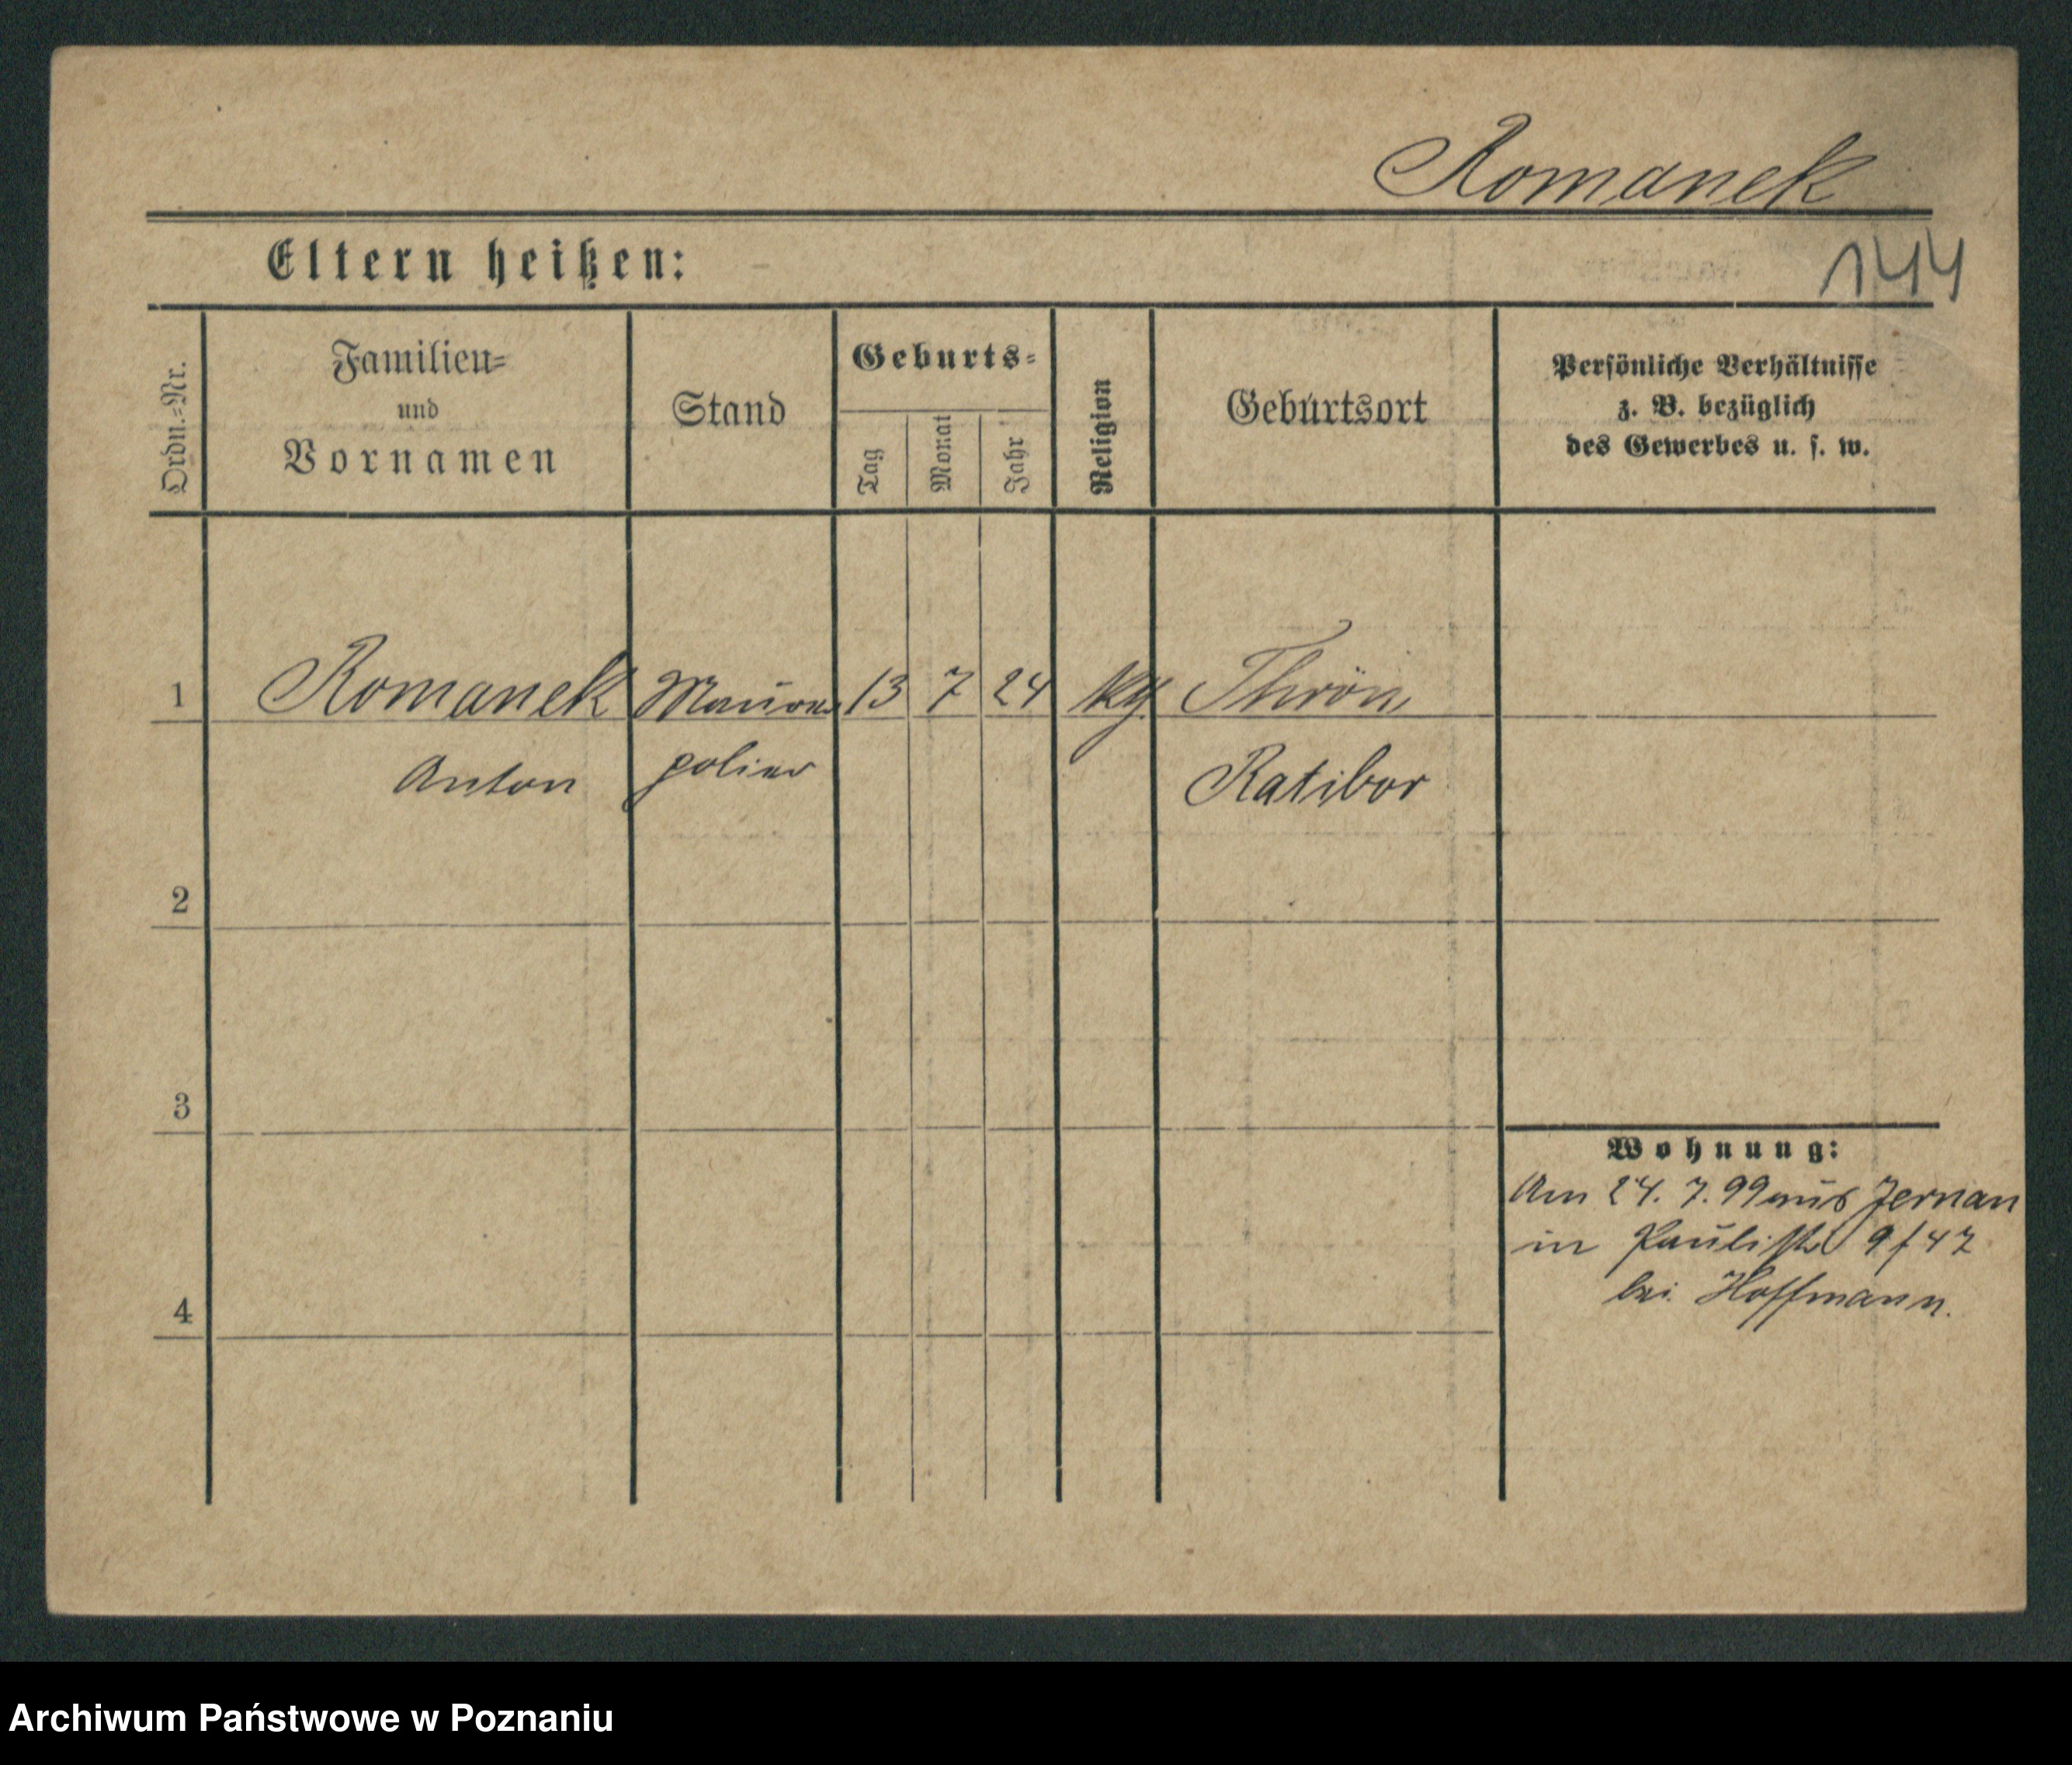 Romanek
Eltern heißen:
144
Ordn.-Nr.
Familien-
und
Vornamen
Stand
Geburts-
Tag
Monat
Jahr
Religion
Geburtsort
Persönliche Verhältnisse
z. B. bezüglich
des Gewerbes u. s. w.
1 Romanek Maurer 13 7 24 Thröm
Anton polier Ratibor
2
3
Wohnung:
Am 24. 7. 99 aus
in Paulistr 9 f 47
bei Hoffmann.
4
Archiwum Państwowe w Poznaniu